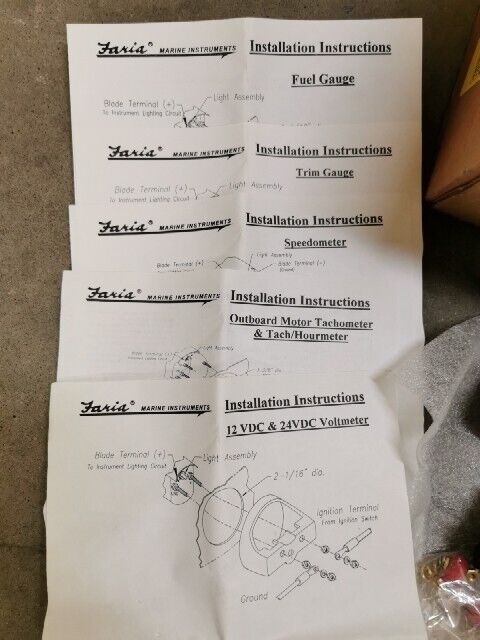 Faria® MARINE INSTRUMENTS Installation Instructions
Fuel Gauge
Blade Terminal (+) Light Assembly
To Instrument Lighting Circuit
Faria® MARINE INSTRUMENTS Installation Instructions
Trim Gauge
Blade Terminal (+) Light Assembly
To Instrument Lighting Circuit
Faria® MARINE INSTRUMENTS Installation Instructions
Speedometer
Light Assembly
Blade Terminal (+) Blade Terminal (-)
(Ground)
Faria® MARINE INSTRUMENTS Installation Instructions
Outboard Motor Tachometer
& Tach/Hourmeter
Light Assembly
Blade Terminal (+)
Faria® MARINE INSTRUMENTS Installation Instructions
12 VDC & 24VDC Voltmeter
Blade Terminal (+) Light Assembly
To Instrument Lighting Circuit
2-1/16" dia.
Ignition Terminal
From Ignition Switch
Ground